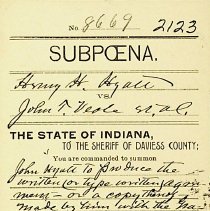 No. 8669 2123
SUBPŒNA.
Henry H. Hyatt
VS.
John T. et al.
THE STATE OF INDIANA,
TO THE SHERIFF OF DAVIESS COUNTY:
You are commanded to summon
John Hyatt to produce the
written (or type written) agree
ment - or a copy thereof
made by him with the